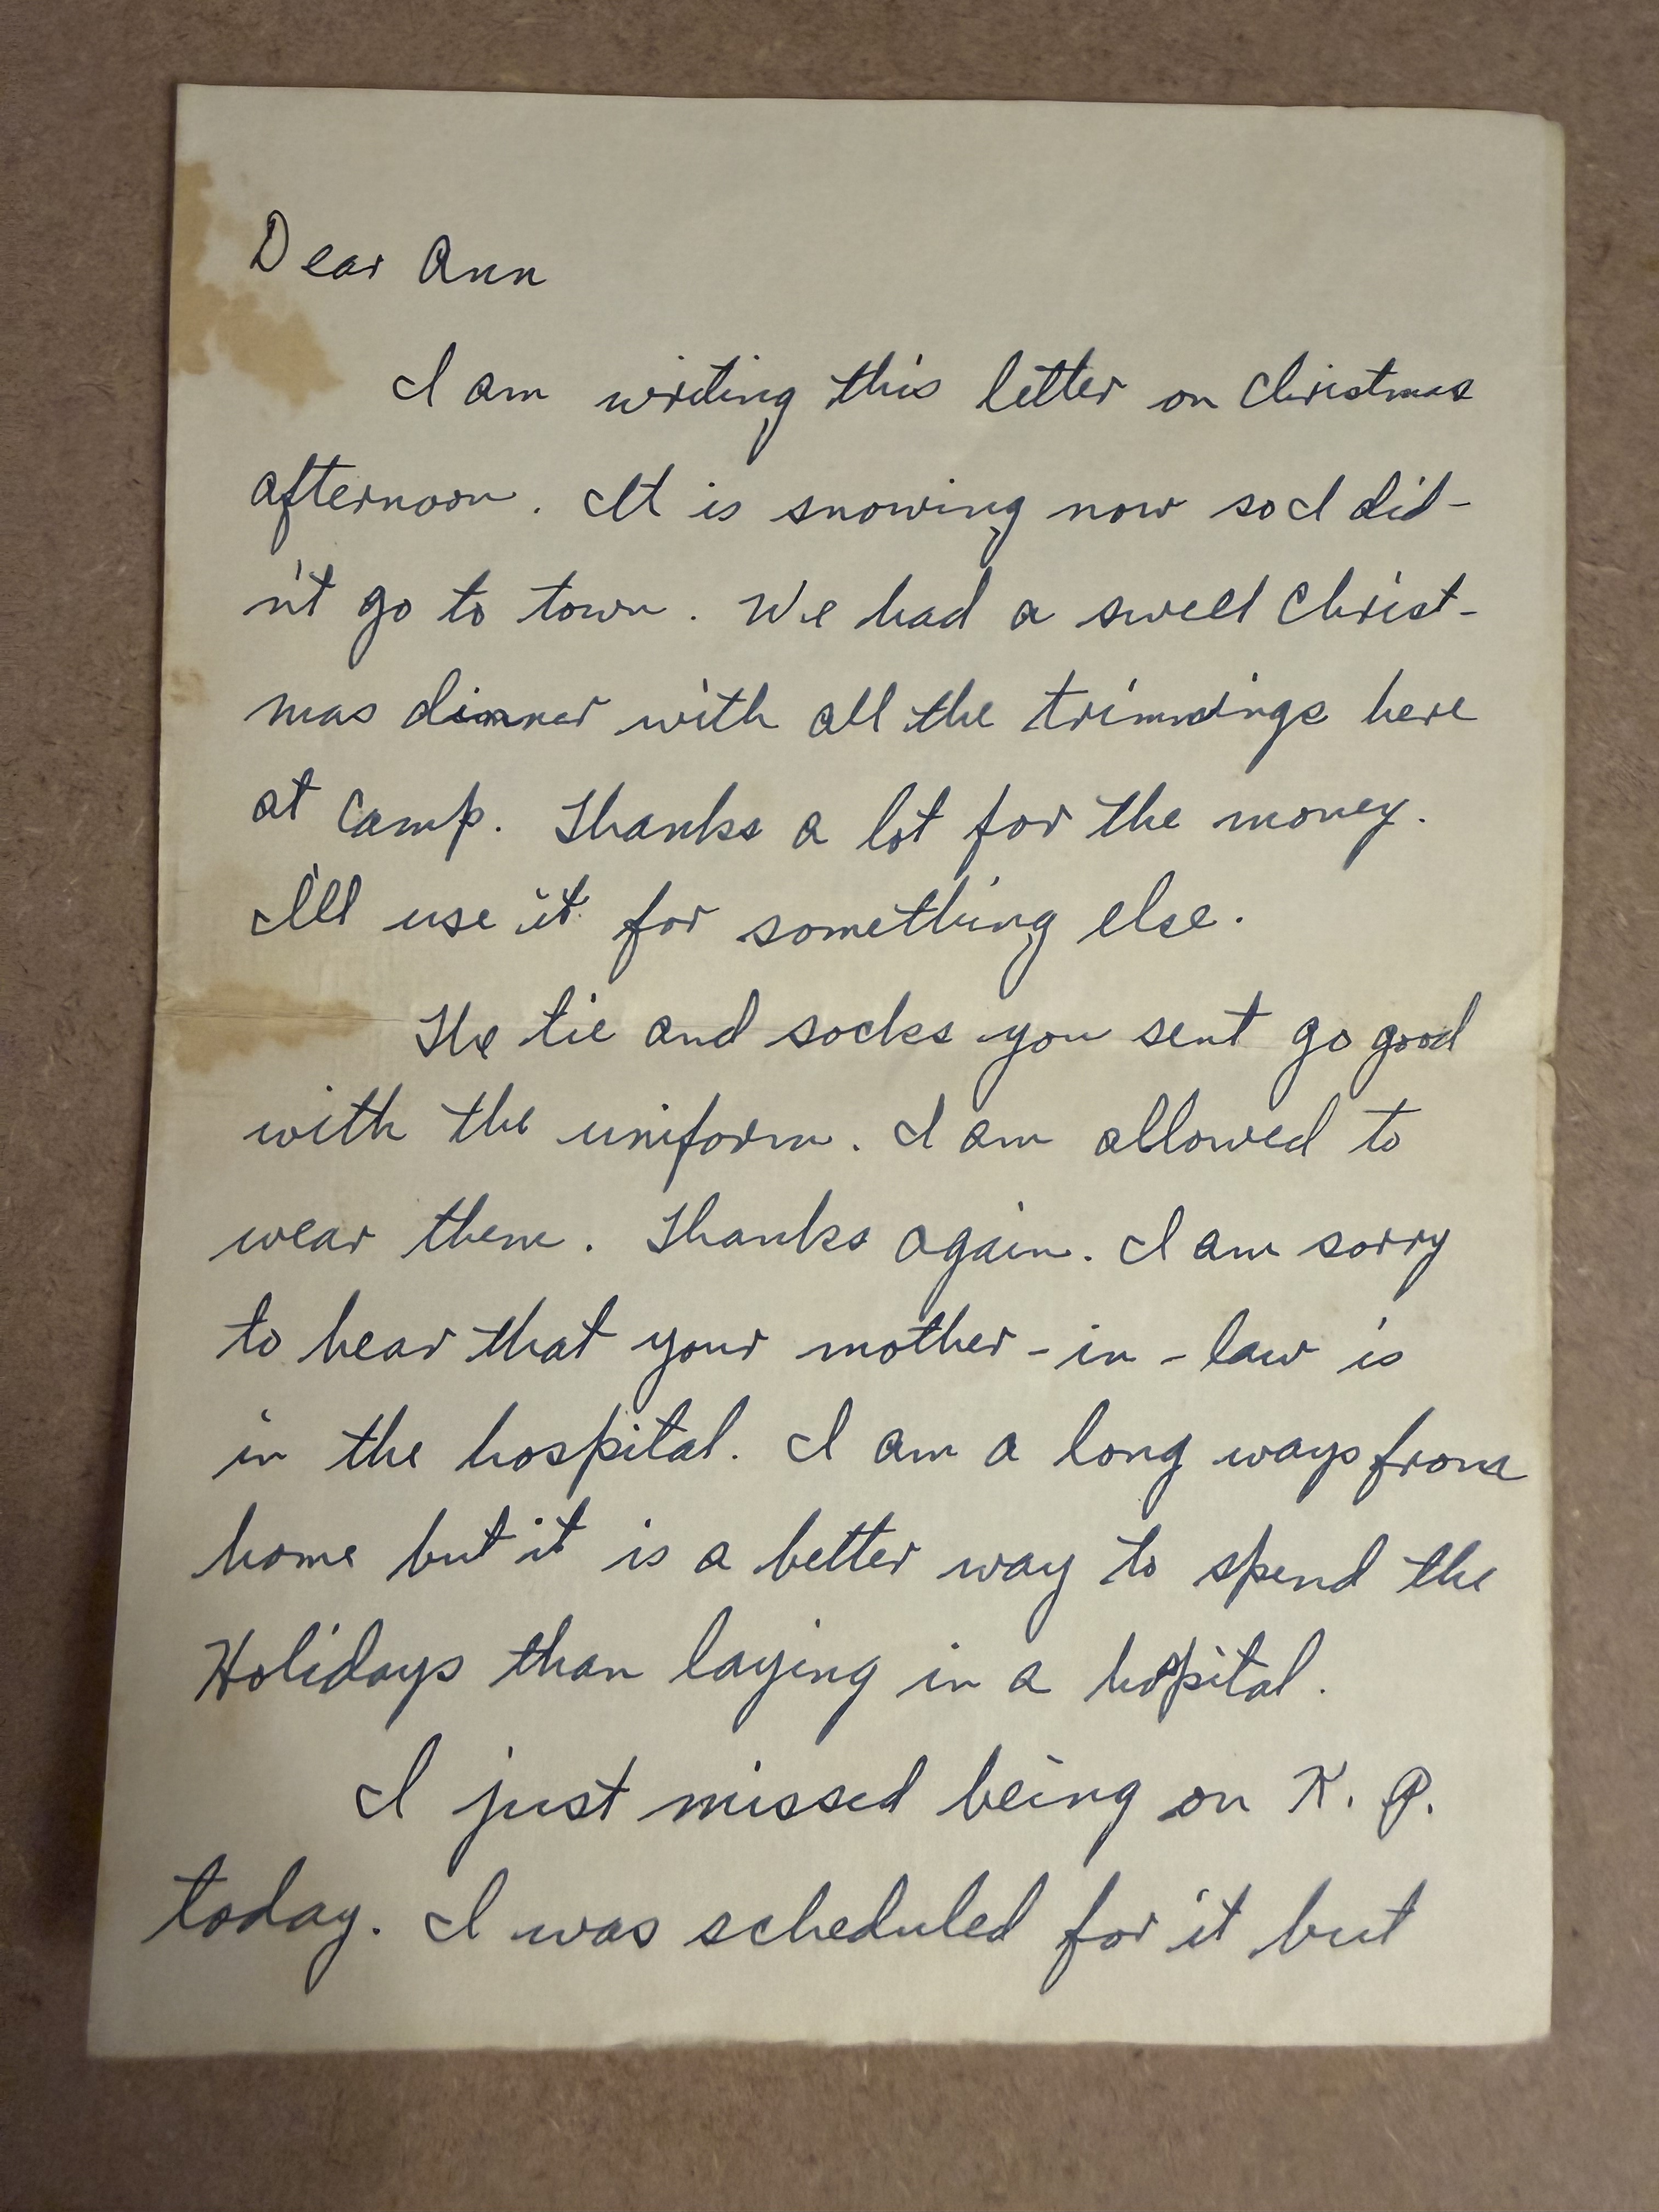 Dear Ann
I am writing this letter on Christmas
afternoon. It is snowing now so I did-
n't go to town. We had a swell Christ-
mas dinner with all the trimmings here
at Camp. Thanks a lot for the money.
I'll use it for something else.
The tie and socks you sent go good
with the uniform. I am allowed to
wear them. Thanks again. I am sorry
to hear that your mother-in-law is
in the hospital. I am a long ways from
home but it is a better way to spend the
Holidays than laying in a hospital.
I just missed being on K. P.
today. I was scheduled for it but